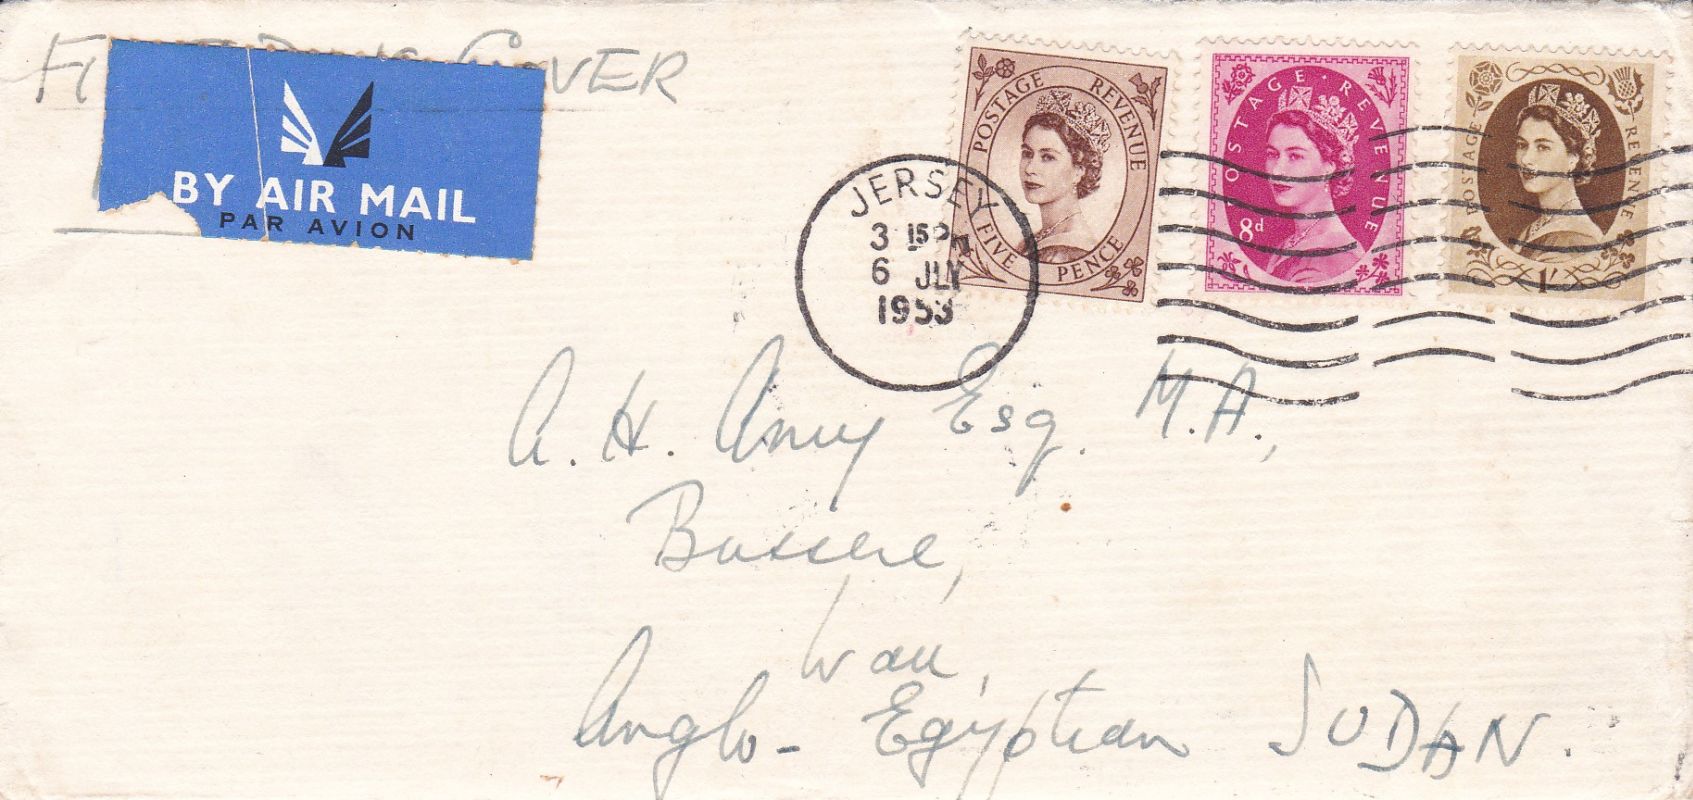 COVER
BY AIR MAIL
PAR AVION
JERSEY
3 15 PM
6 JLY
1953
POSTAGE REVENUE
FIVE PENCE
POSTAGE REVENUE
8d
POSTAGE REVENUE
1/-
A. H. Amy Esq. M.A.,
Bussere,
Wau,
Anglo-Egyptian SUDAN.